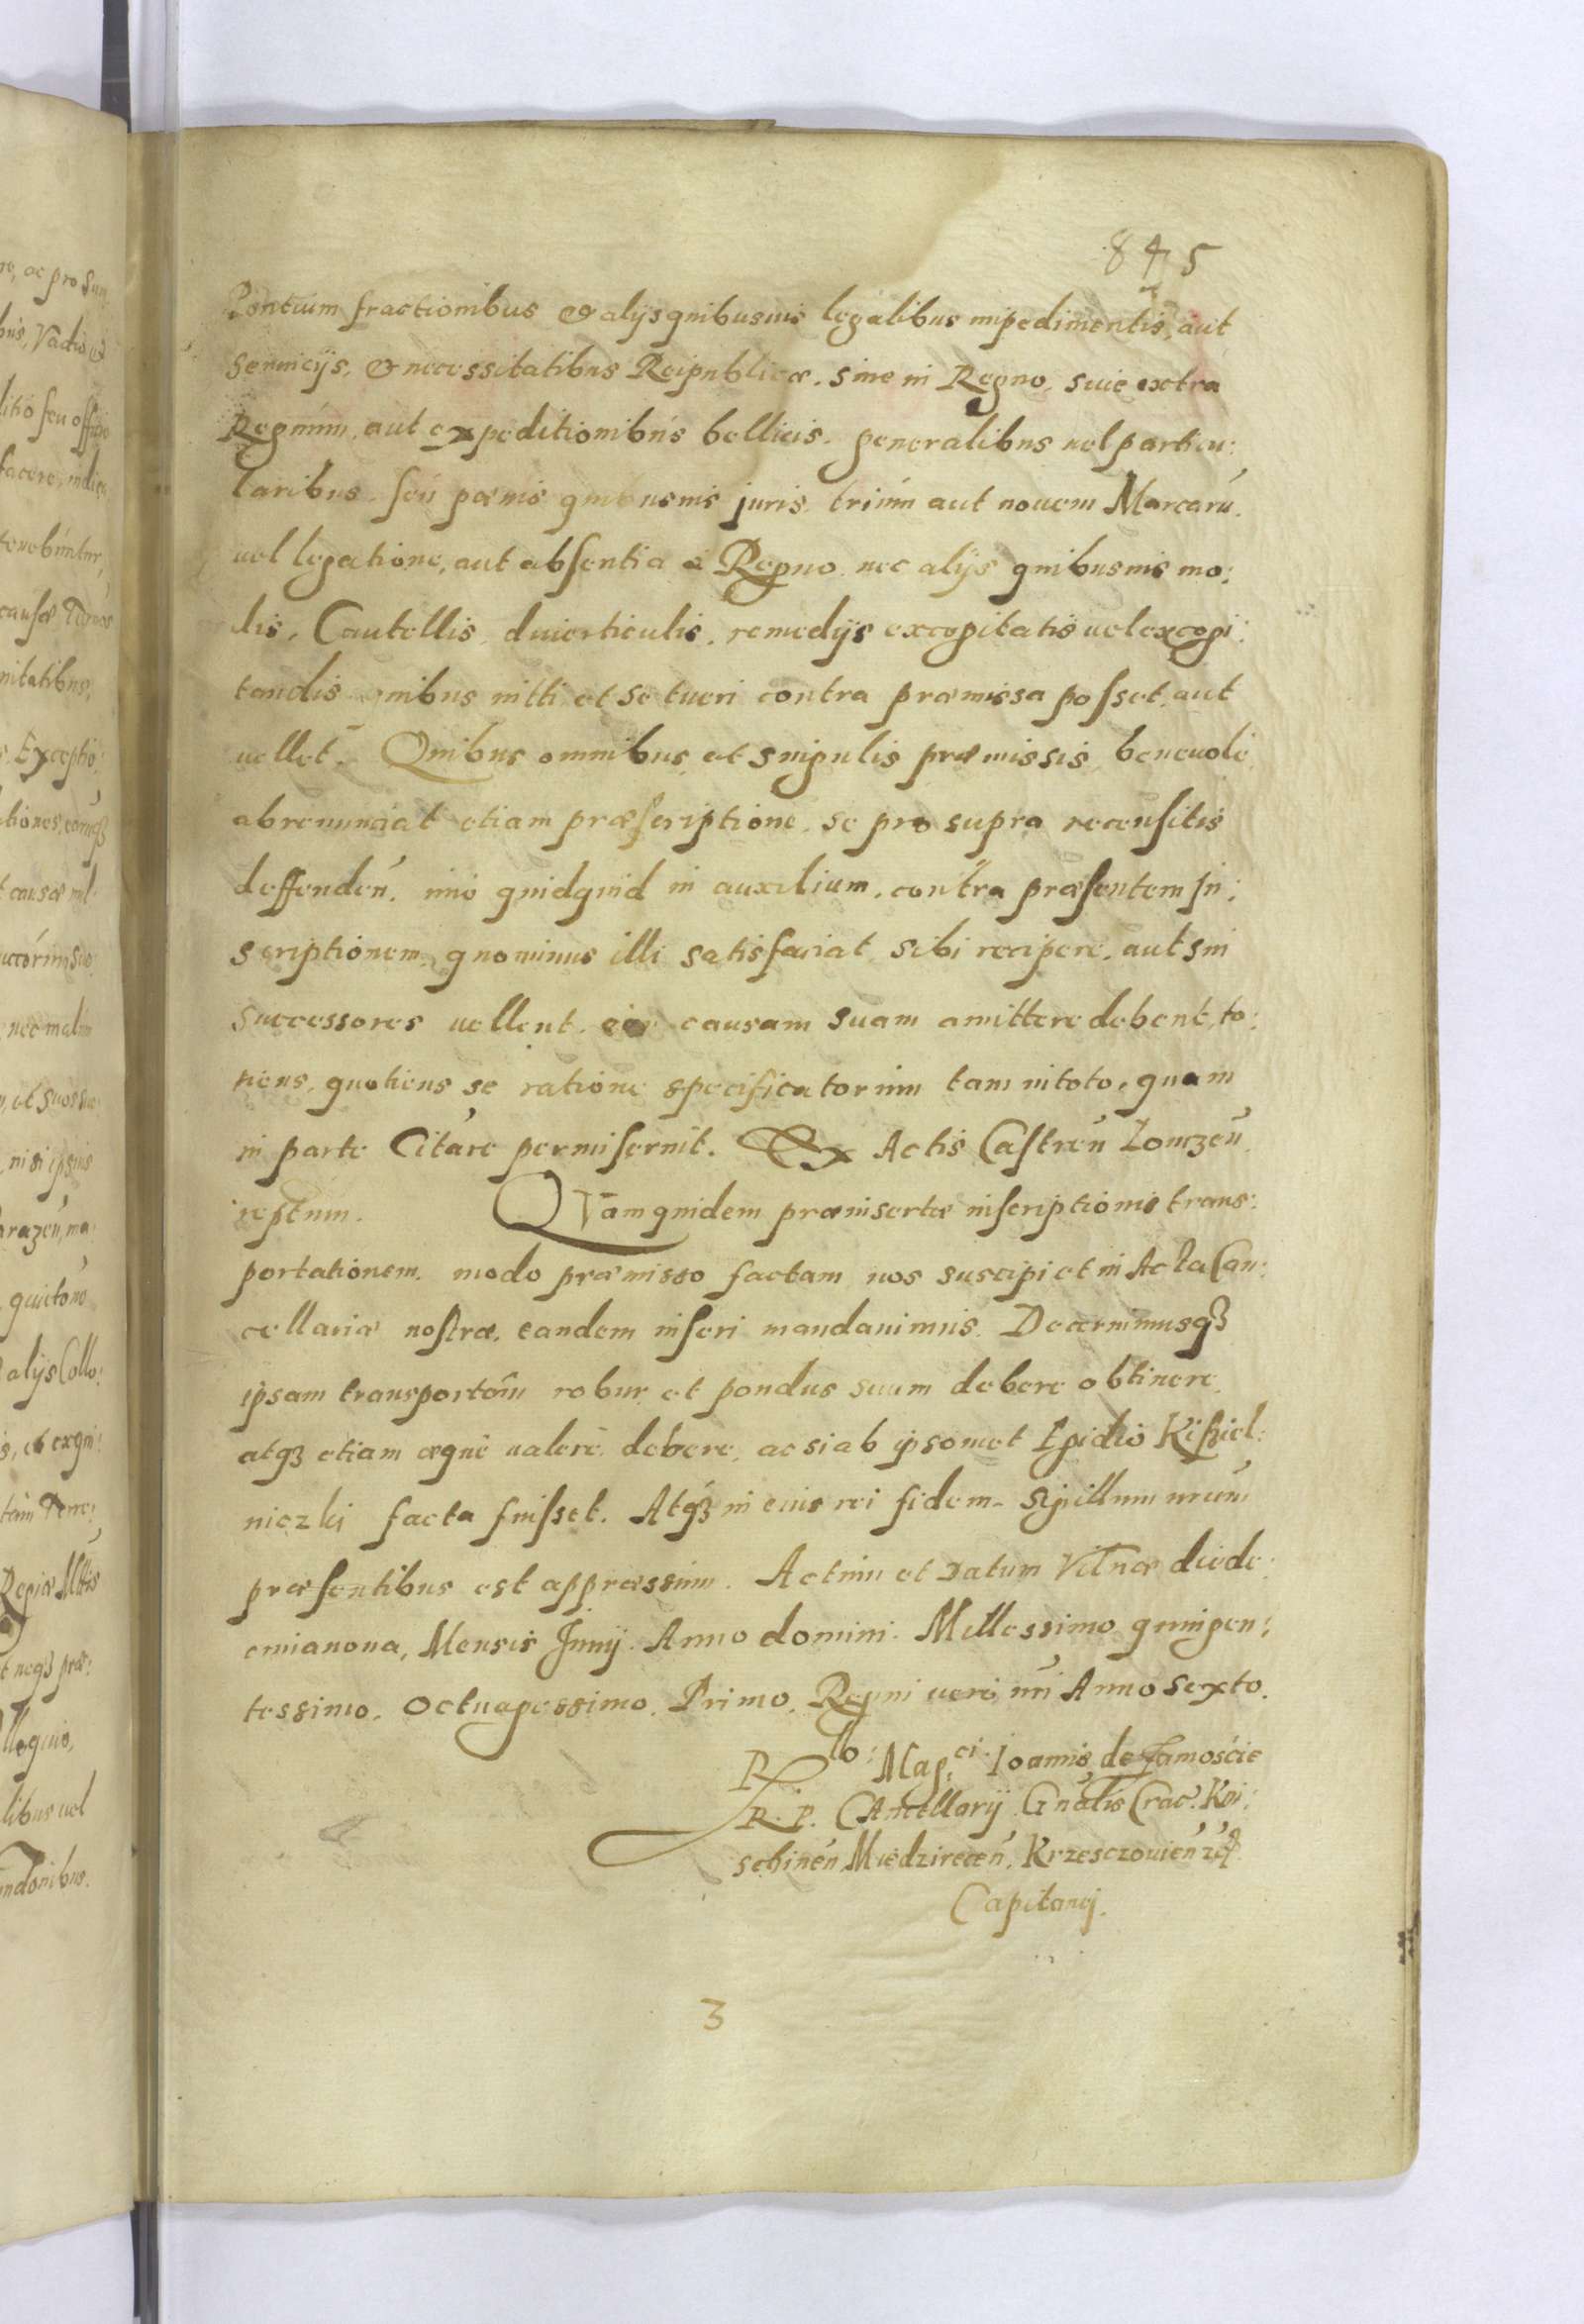 845
Pontium fractionibus & alijs quibusuis legalibus impedimentis, aut
seruicijs, & necessitatibus Reipublicæ, siue in Regno, siue extra
Regnum, aut expeditionibus bellicis, generalibus uel particu:
laribus, seu pœnis quibusuis juris, trium aut nouem Marcarū
uel legatione, aut absentia à Regno nec alijs quibusuis mo:
dis, Cautellis, diuerticulis, remedijs excogitatis uel excogi:
tandis quibus niti et se tueri contra præmissa posset, aut
uellet. Quibus omnibus et singulis præmissis beneuole
abrenunciat etiam præscriptione, se pro supra recensitis
deffendeń, imò quidquid in auxilium, contra præsentem In:
scriptionem, quominus illi satisfaciat, sibi recipere, aut sui
successores uellent, causam suam amittere debent, to:
tiens, quotiens se ratione specificatorum tam in toto, quam
in parte Citare permiserint. Ex Actis Castreń Lonczeń
reptum. QVam quidem præinsertæ inscriptionis trans:
portationem modo præmisso factam nos suscipi et in Acta Can:
cellariæ nostræ, eandem inseri mandauimus. Decernimusqȝ
ipsam transportom̃ robur et pondus suum debere obtinere,
atqȝ etiam æque ualere debere, ac si ab ipsomet Egidio Kisziel:
niczki facta fuisset. Atqȝ in eius rei fidem sigillum nrum̃
præsentibus est appressum. Actum et Datum Vilnæ die de:
cimanona, Mensis Junij. Anno domini Millessimo quingen:
tessimo, Octuagessimo, Primo, Regni uero nri Anno sexto.
Rlo: Mag.ci Ioannis de Zamoscie
R. P. Cancellarij Gnalis Crac. Kni:
schineń Miedzireceń, Krzesczouień zc̃
Capitanej.
3